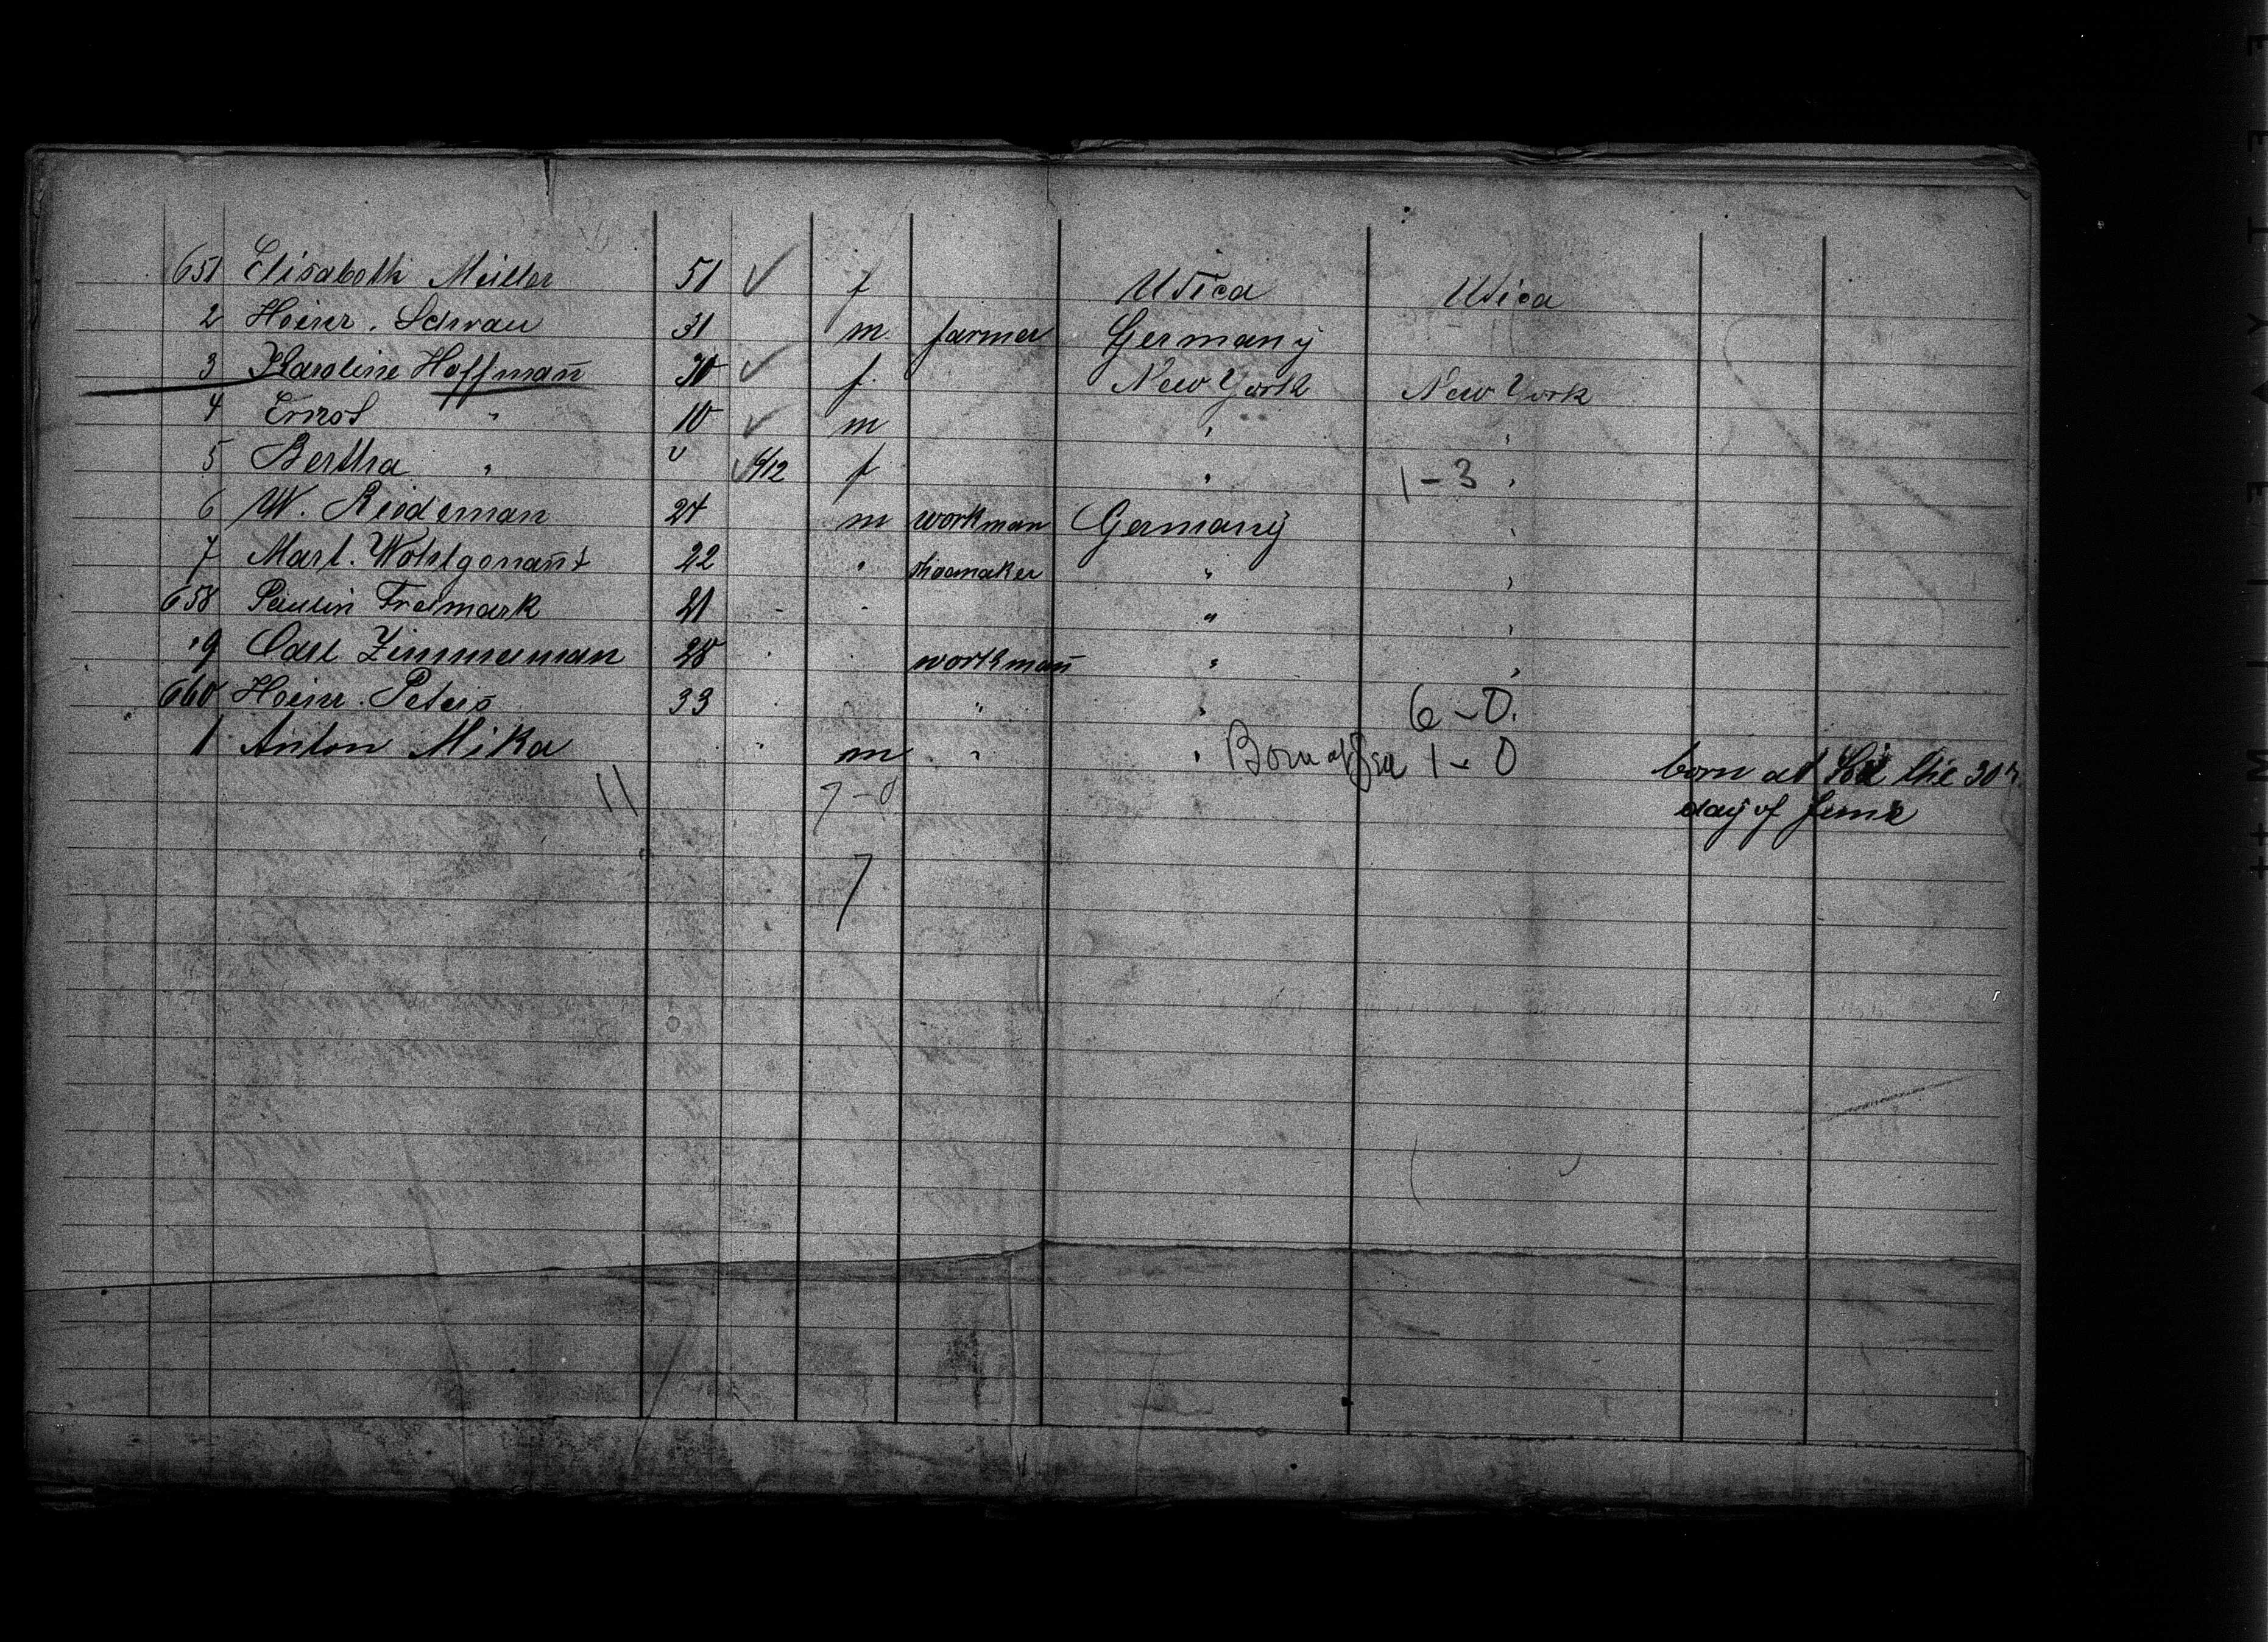 651 Elisabeth Müller 51 ✓ f Utica Utica
2 Heinr. Schrau 31 m. farmer Germany
3 Karoline Hoffman̄ 30 ✓ f. New York New York
4 Ernst " 10 ✓ m " "
5 Bertha " ✓ 6/12 f " 1-3 "
6 W. Riedeman 24 m workman Germany "
7 Mart. Wohlgenan̄t 22 " shoemaker " "
658 Paulin Freimark 21 " " " "
9 Carl Zimmerman 28 " " workman̄ " "
660 Heinr. Peters 33 " " " 6-0.
1 Anton Mika " m " " Born at Sea 1-0 born at Sea the 30th
11 7-0 day of June
7